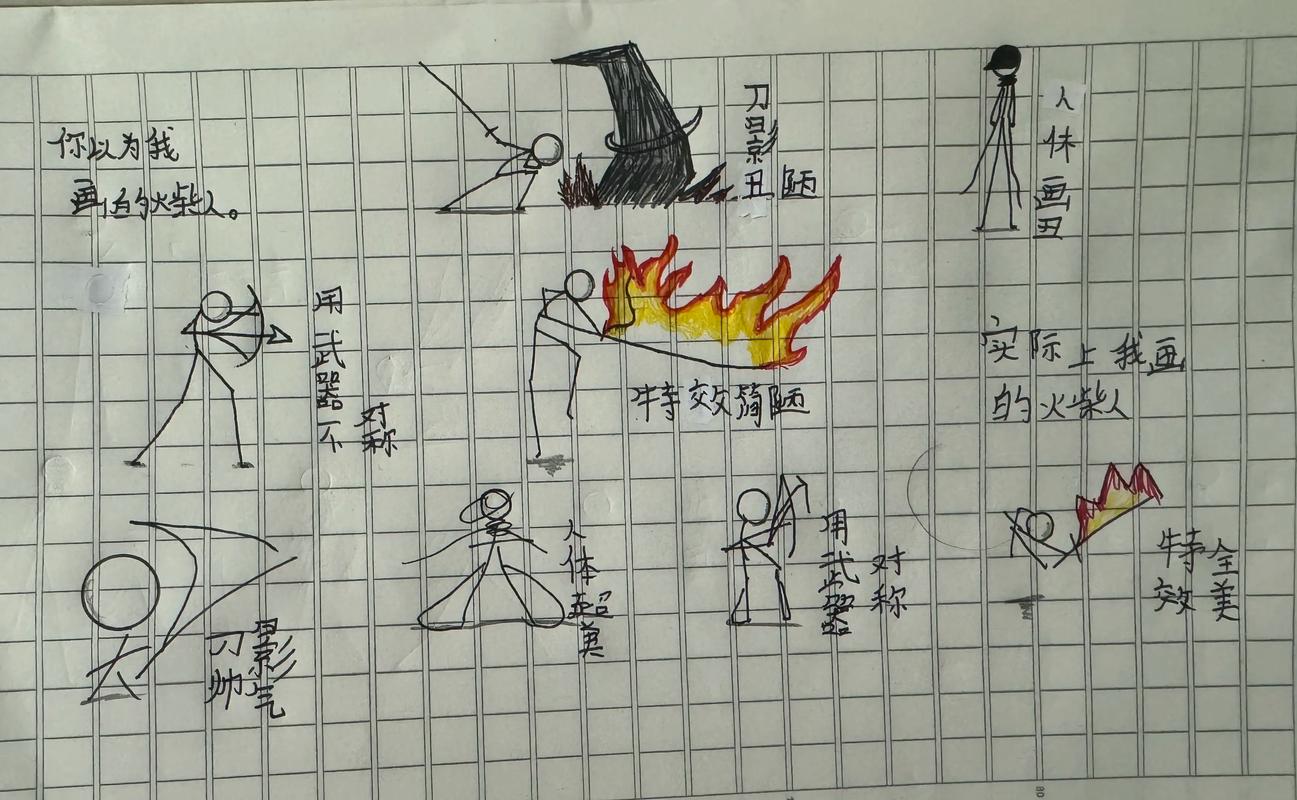 你以为我
画的火柴人。
刀影丑陋
人体画丑
用武器不
对称
特效简陋
实际上我画
的火柴人
刀帅
影气
人体超美
用武器
对称
特效
全美
80